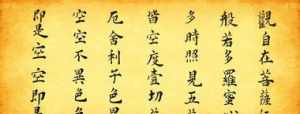 觀自在菩薩
般若多羅蜜
多時照見五
皆空度壹切
厄舍利子色
空空不異色
即是空空即